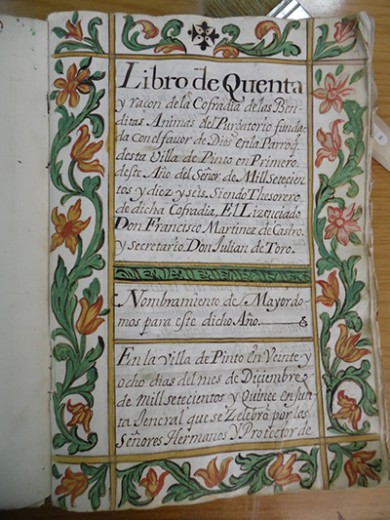 Libro de Quenta
y raçon de la Cofradia de las Ben-
ditas Animas del Purgatorio funda-
da con el favor de Dios en la Parroq.
desta Villa de Pinto en Primero.
deste Año del Señor de Mill Setecien-
tos y diez y seis. Siendo Thesorero
de dicha Cofradia, El Lizenciado
Don Francisco Martinez de Castro.
y secretario, Don Julian de Toro.
Nombramiento de Mayordo-
mos para este dicho Año.
En la Villa de Pinto en Veinte y
ocho dias del mes de Diciembre
de mill setecientos y Quince en Jun-
ta Jeneral que se Zelebró por los
Señores Hermanos y Protector de